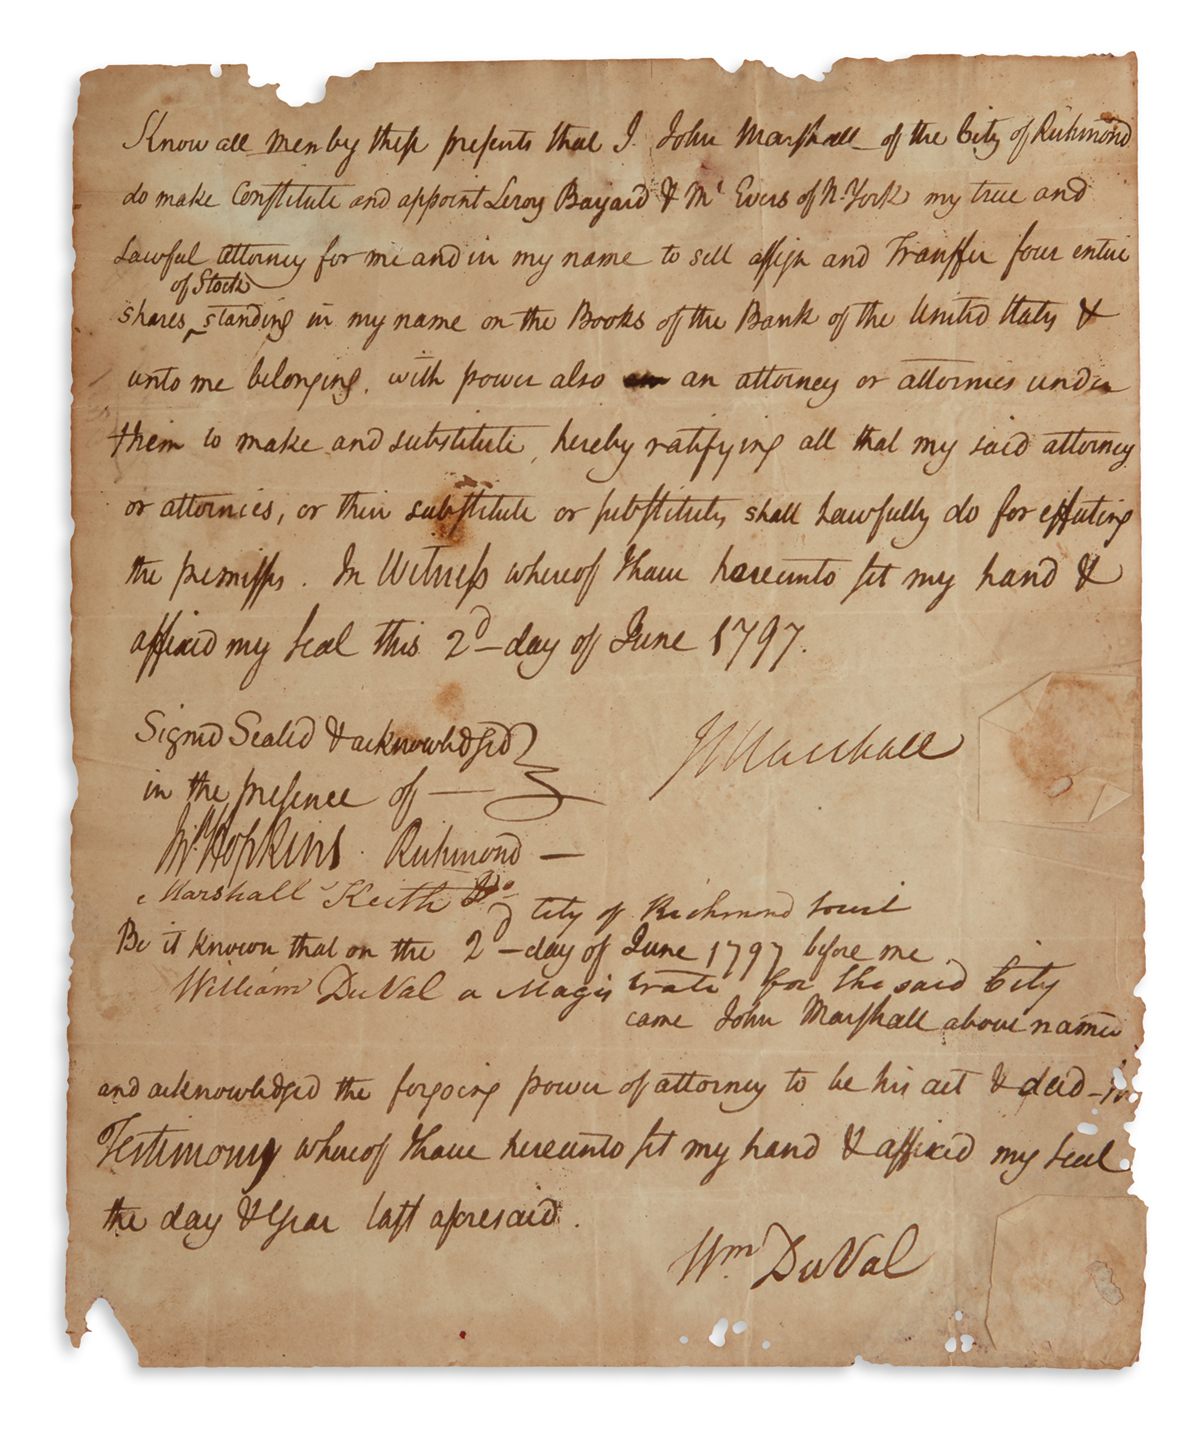 Know all men by these presents that I John Marshall of the City of Richmond
do make Constitute and appoint Leroy Bayard & Mc Evers of N. York my true and
Lawful attorney for me and in my name to sell assign and Transfer four entire
of Stock
shares ‸ standing in my name on the Books of the Bank of the United States &
unto me belonging, with power also an attorney or attornies under
them to make and substitute, hereby ratifying all that my said attorney
or attornies, or their substitute or substitutes shall Lawfully do for effecting
the premisses. In Witness whereof I have hereunto set my hand &
affixed my Seal this 2d - day of June 1797.
Signed Sealed & acknowledged
in the presence of —
J Marshall
Jno. Hopkins. Richmond —
Marshall Keith Do
City of Richmond
Be it known that on the 2d - day of June 1797 before me
William DuVal a Magistrate for the said City
came John Marshall above named
and acknowledged the forgoing power of attorney to be his act & deed - in
Testimony whereof I have hereunto set my hand & affixed my Seal
the day & Year last aforesaid.
Wm. DuVal